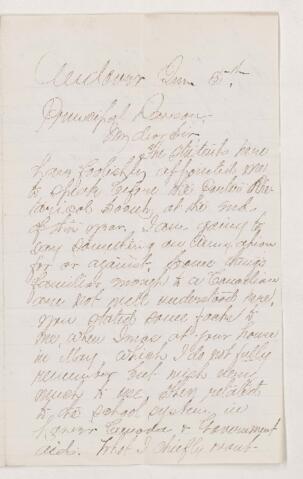 Andover Jan 5th
Principal Dawson,
My dear Sir
The students have
very foolishly appointed me
to speak before the
Society, at the end
of this year. I am going to
say something on Annexation
for or against. Some things
familiar enough to a Canadian
are not well understood here.
You stated some facts to
me when I was at your house
in May, which I do not fully
remember but wish very
much to use, they related
to the school system in
Lower Canada & Government
aids. What I chiefly want